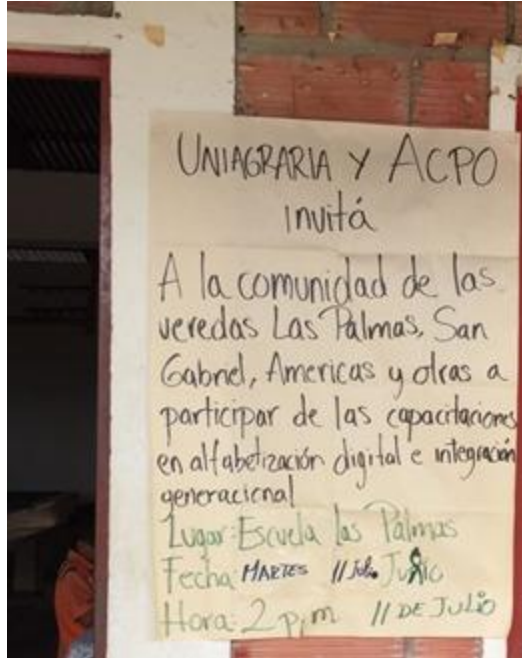 UNIAGRARIA Y ACPO
invitá
A la comunidad de las
veredas Las Palmas, San
Gabriel, Americas y otras a
participar de las capacitaciones
en alfabetización digital e integración
generacional
Lugar: Escuela las Palmas
Fecha: MARTES 11 Julio Julio
Hora: 2 p.m 11 DE JULIO